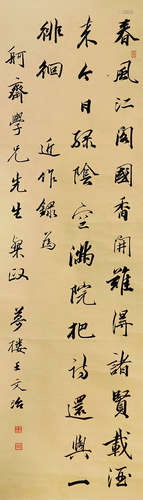 春風江閣國香開難得諸賢載酒
來今日綠陰空滿院把詩還與一
徘徊　近作錄為
舸齋學兄先生粲政　夢樓王文治